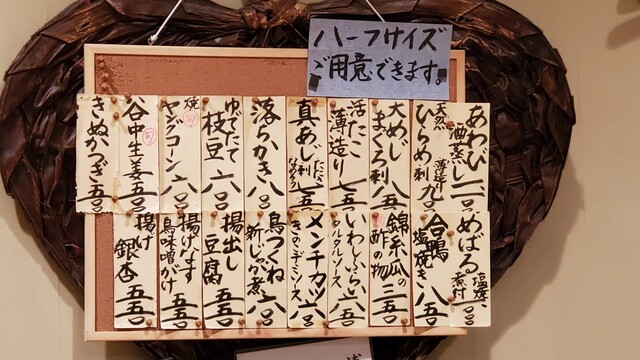 ハーフサイズ
ご用意できます。
あわび酒蒸し 一一〇〇
天然ひらめ刺 薄造り 九〇〇
大めじまぐろ刺 八五〇
活たこ薄造り 七五〇
真あじ たたき 刺 なめろう 七五〇
落らかき 八〇〇
ゆでたて枝豆 六〇〇
焼ヤングコーン 六〇〇
谷中生姜 五五〇
きぬかつぎ 五五〇
めばる 塩焼 煮付
合鴨塩焼き 八五〇
錦糸瓜の酢の物 三五〇
いわしフライ タルタルソース 六五〇
メンチカツ きのこデミソース 六〇〇
鳥つくね 新じゃが煮 六〇〇
揚出し豆腐 五五〇
揚げなす鳥味噌がけ 五五〇
揚げ銀杏 五五〇